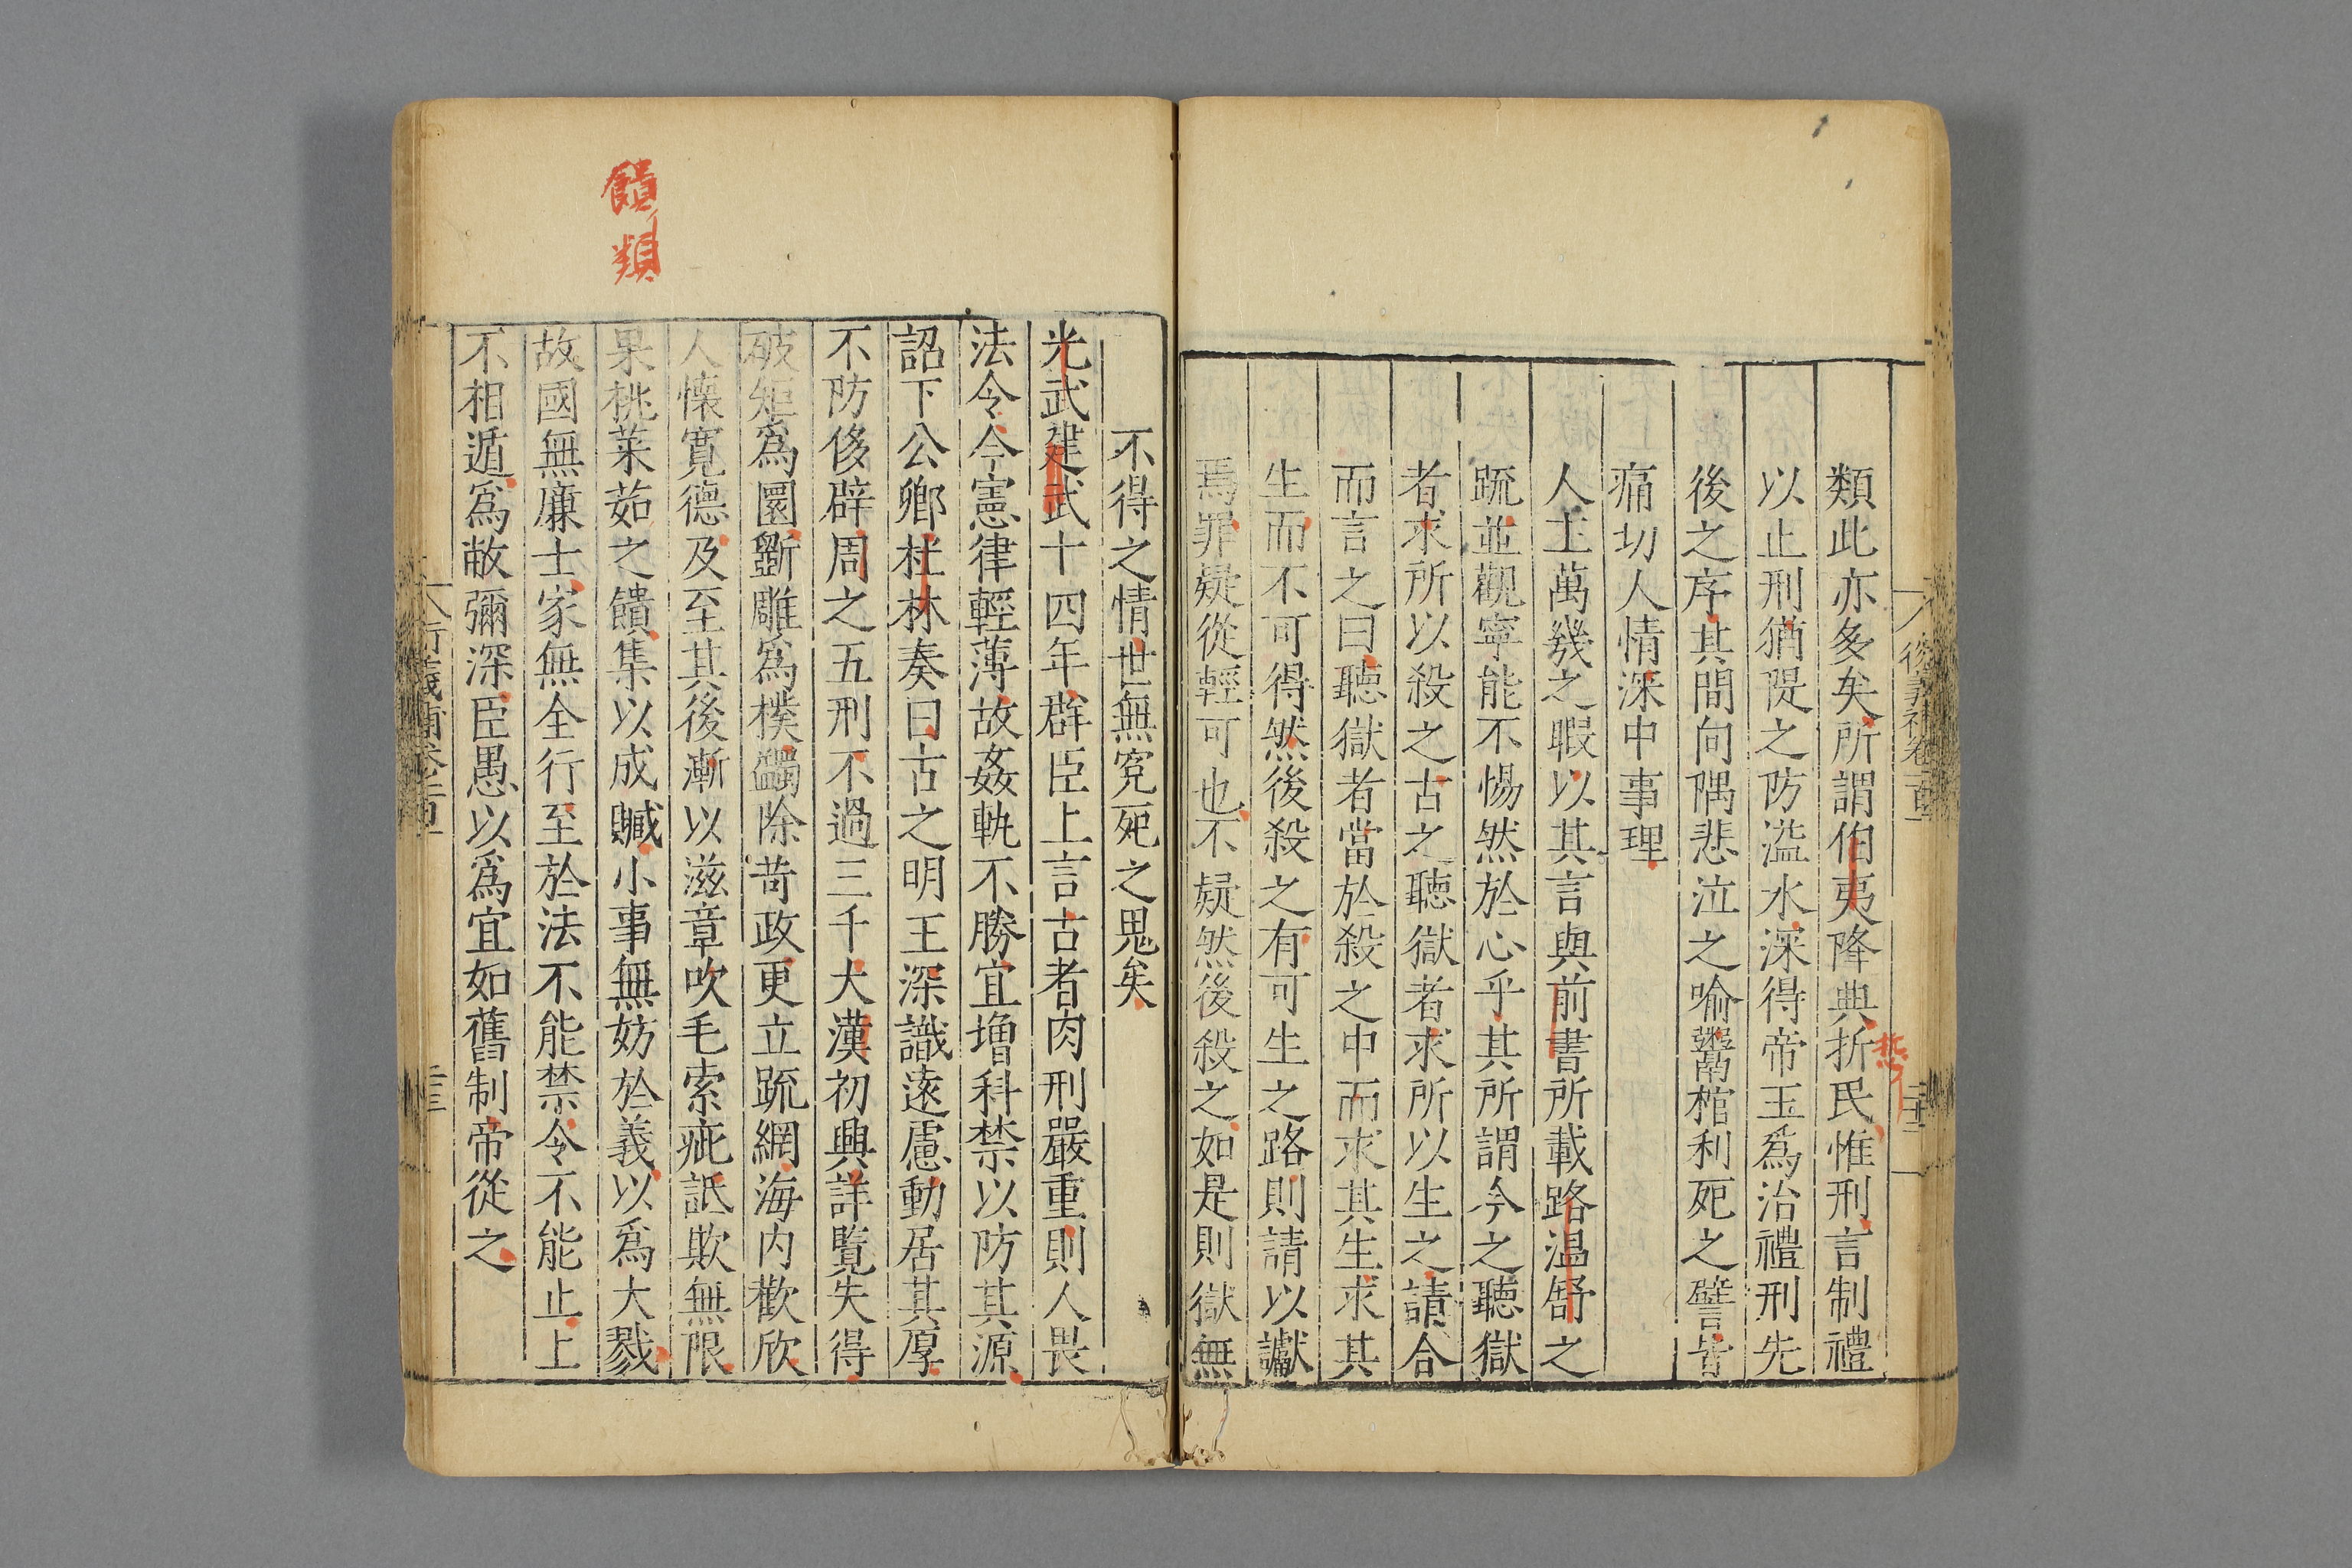 類此亦多矣所謂伯夷降典折民惟刑言制禮
悊
以止刑猶隄之防溢水深得帝王爲治禮刑先
後之序其間向隅悲泣之喻鬻棺利死之譬皆
痛切人情深中事理
人主萬幾之暇以其言與前書所載路温舒之
疏並觀寧能不惕然於心乎其所謂今之聽獄
者求所以殺之古之聽獄者求所以生之請合
而言之曰聽獄者當於殺之中而求其生求其
生而不可得然後殺之有可生之路則請以讞
焉罪疑從輕可也不疑然後殺之如是則獄無
不得之情世無寃死之鬼矣
光武建武十四年群臣上言古者肉刑嚴重則人畏
法令今憲律輕薄故姦軌不勝宜增科禁以防其源
詔下公卿杜林奏曰古之明王深識遠慮動居其厚
不防侈辟周之五刑不過三千大漢初興詳覽失得
破矩爲圜斵雕爲樸蠲除苛政更立疏網海内歡欣
人懷寛德及至其後漸以滋章吹毛索疵詆欺無限
饋 類
果桃菜茹之饋集以成贓小事無妨於義以爲大戮
故國無廉士家無全行至於法不能禁令不能止上
不相遁爲敝彌深臣愚以爲宜如舊制帝從之